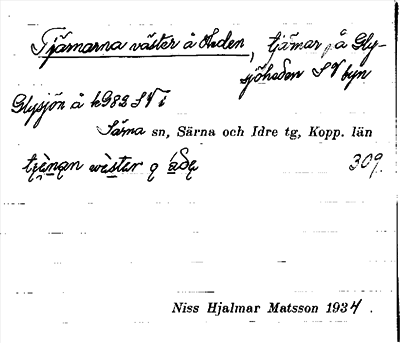 Tjärnarna väster å Heden, tjärnar på Gly-
sjöheden SV byn
Glysjön å k982 SV i
Särna sn, Särna och Idre tg, Kopp. län
309.
Niss Hjalmar Matsson 1934.